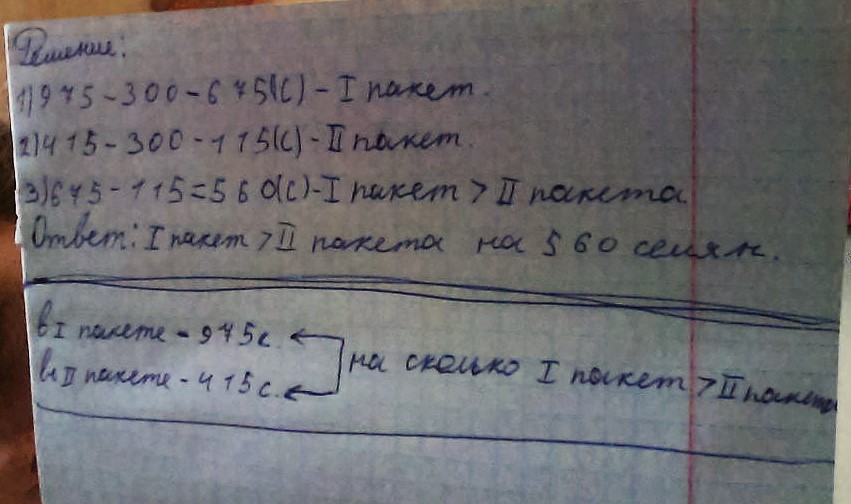 Решение:
1) 975-300-675(с)-I пакет.
2) 415-300-115(с)-II пакет.
3) 675-115=560(с)-I пакет > II пакета
Ответ: I пакет > II пакета на 560 семян.
в I пакете - 975с.
в II пакете - 415с.
на сколько I пакет > II пакета